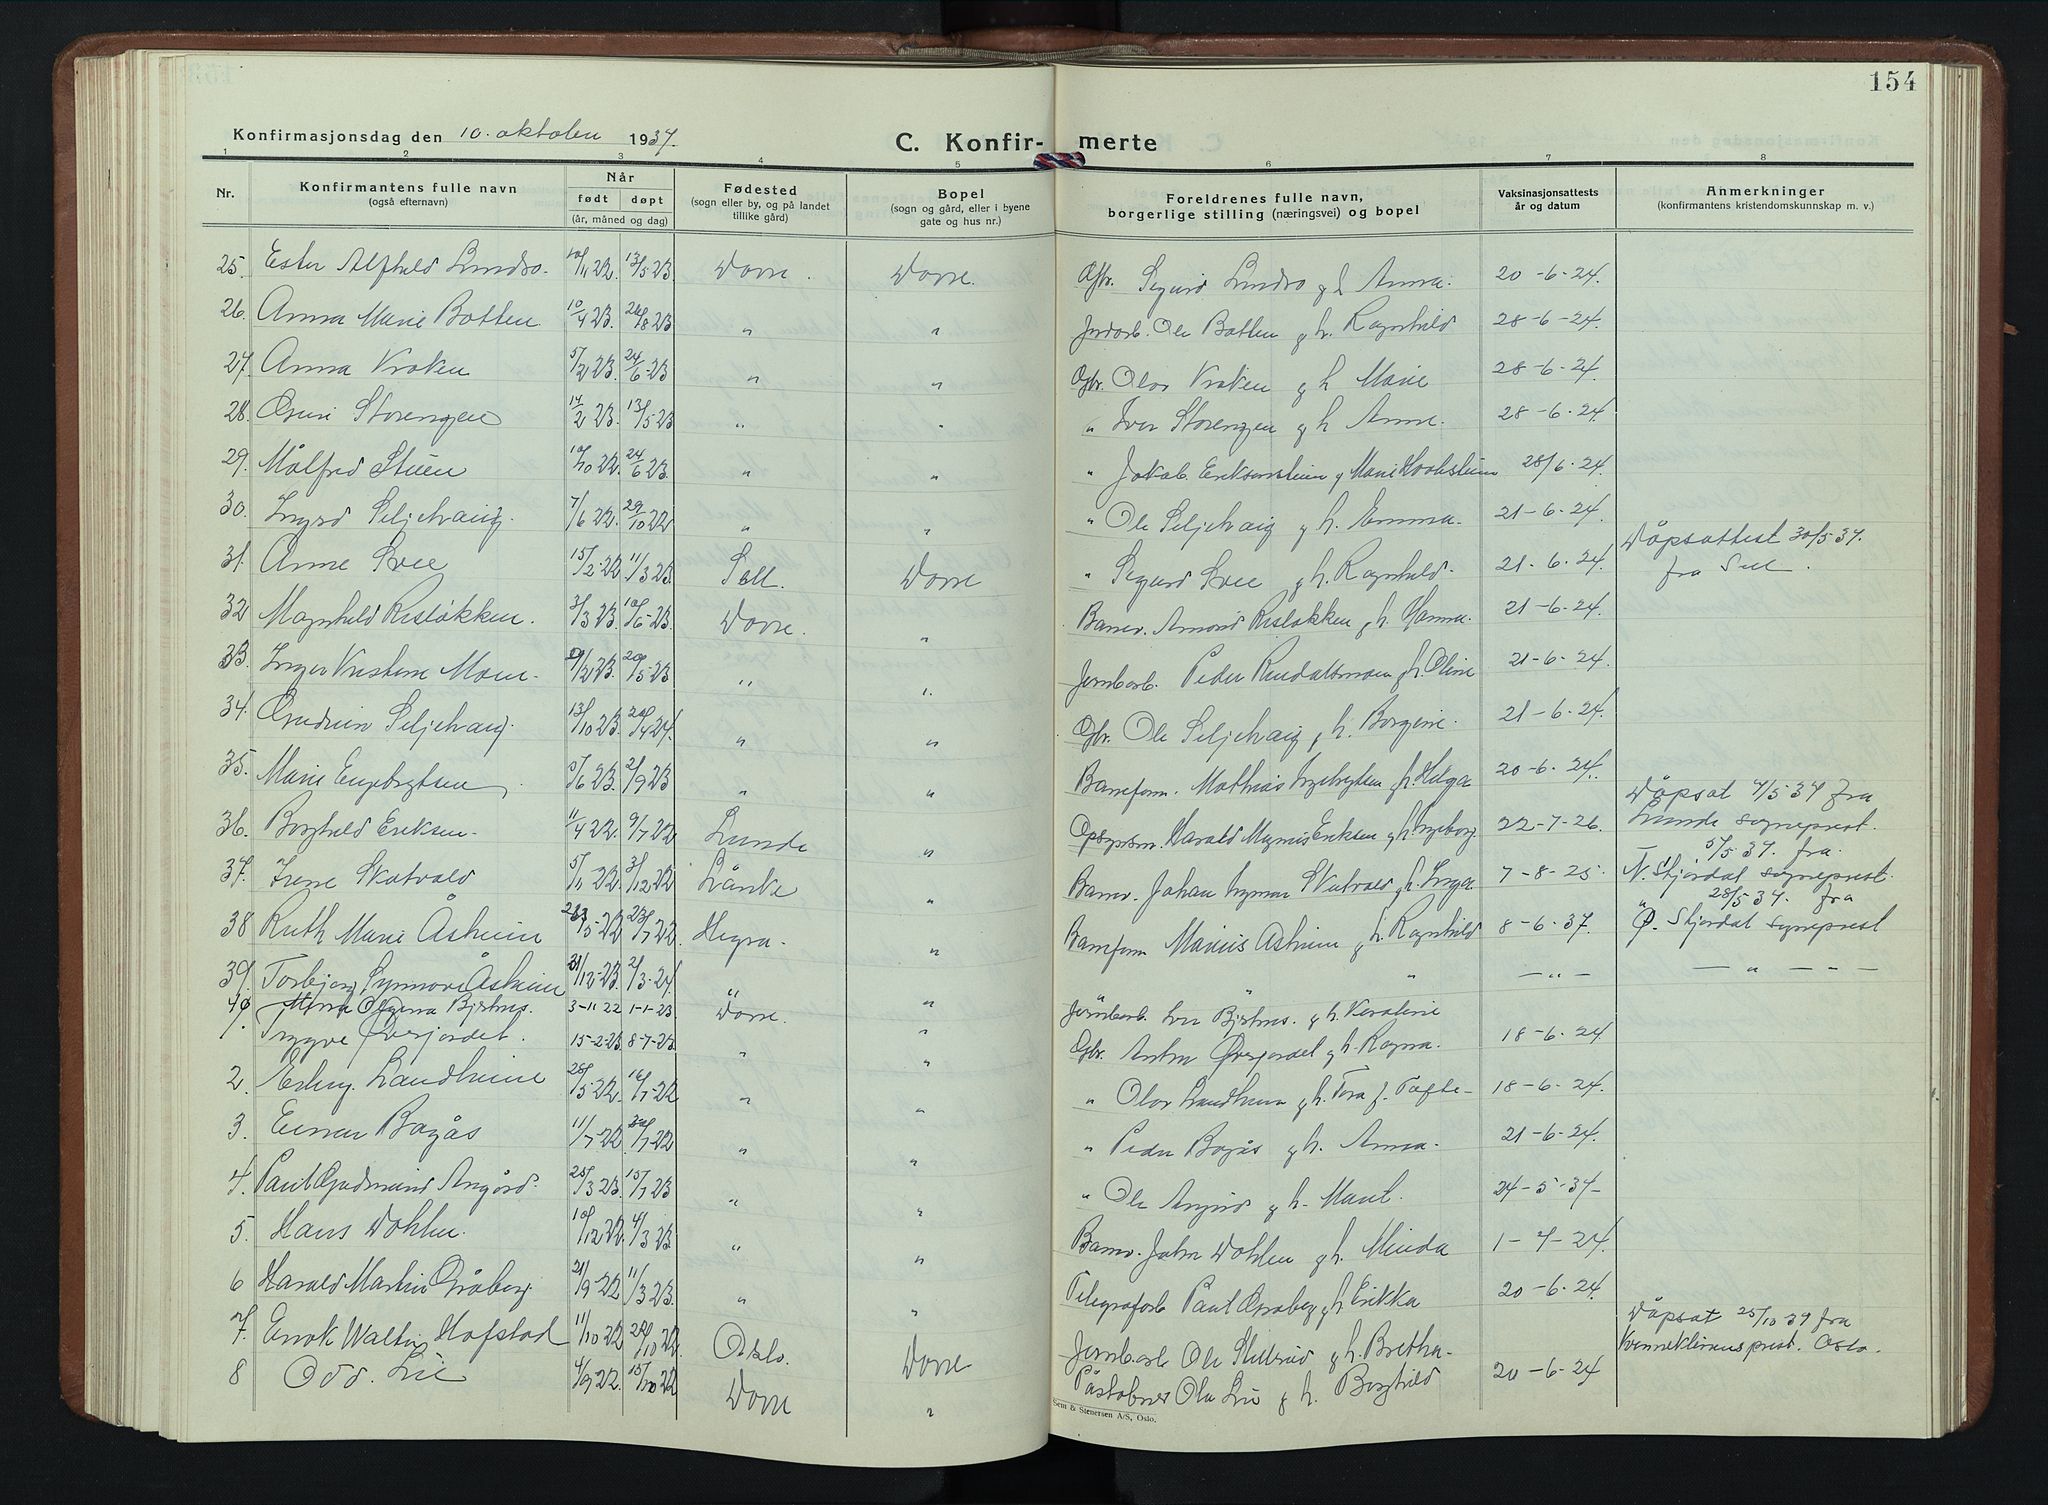 154
Konfirmasjonsdag den 10. oktober 1937. C. Konfirmerte
1 2 3 4 5 6 7 8
Nr. Konfirmantens fulle navn (også efternavn) Når født døpt (år, måned og dag) Fødested (sogn eller by, og på landet tillike gård) Bopel (sogn og gård, eller i byene gate og hus nr.) Foreldrenes fulle navn, borgerlige stilling (næringsvei) og bopel Vaksinasjonsattests år og datum Anmerkninger (konfirmantens kristendomskunnskap m. v.)
25. Ester Alfhild Lindsø. 10/11 22. 13/5 23 Dovre. Dovre. Gbr. Sigurd Lindsø g h Anna. 20-6-24.
26. Anna Marie Botten. 10/4 23. 26/8 23 " " Jordarb. Ole Botten g h. Ragnhild 28-6-24.
27. Anna Kroken 5/2 23. 24/6-23 " " Gbr. Olav Kroken g h Marie 28-6-24.
28. Guri Storengen 14/2 23. 13/5-23 " " " Iver Storengen g h Anne. 28-6-24.
29. Målfrid Stuen 10/10 22. 24/6 23. " " " Jakob Erikson Stuen g Marie 28/6-24.
30. Ingrid Seljehaug. 7/6 22. 29/10 22 " " " Ole Seljehaug g h. Emma. 21-6-24.
31. Anne Svee 15/2-22 11/3 23. Sell. Dovre " Sigurd Svee g h. Ragnhild. 21-6-24. Dåpsattest 30/5-37. fra Sel.
32 Magnhild Risløkken. 3/3 23. 10/6-23. Dovre. " Banev. Amund Risløkken g h. Hanna. 21-6-24.
33. Inger Kristine Moen. 9/2 23. 20/5-23 " " Jernbarb. Peder Rindalsmoen g h. Oline 21-6-24.
34. Gudrun Seljehaug. 13/10 23. 20/4 24. " " Gbr. Ole Seljehaug g h. Borgine. 21-6-24.
35. Marie Engebrigtsen /6 23. 2/9 23 " " Baneform. Mathias Ingebrigtsen g h. Helga 20-6-24.
36. Borghild Eriksen. 11/4 22. 9/7-22 Lunde " Opsynsm. Harald Magnus Eriksen g h. Ingeborg. 22-7-26. Dåpsat 4/5 37 fra Lunde sogneprest.
37. Irene Skatvold 5/11 22. 3/12 22 Lånke " Banev. Johan Ingmar Skatvold g h. Inga 7-8-25. " 5/5 37. fra N. Stjørdal sogneprest.
38 Ruth Marie Åsheim 23/5-22 23/7 22. Hegra. " Baneform Marius Åsheim g h. Ragnhild 8-6-37. " 28/5 37. fra Ø. Stjørdal sogneprest
39. Torbjørg Synnøve Åsheim 31/12-23. 2/3-24. " " " " " — " — — " — — —
40. Olgena Bjørhus. 3-11 22 1-1-23. Dovre. " Jernbarb. Iver Bjørhus. g h. Karoline
1. Trygve Øverjordet. 15-2-23. 8-7-23. " " Gbr. Anton Øverjordet g h. Ragna. 18-6-24
2. Erling Landheim 28/5-22. 16/7-22 " " " Olav Landheim g h. Tora f. Tofte- 18-6-24.
3. Einar Bogås 11/7-22. 30/7-22 " " " Peder Bogås g h. Anna. 21-6-24.
4. Paul Gudmund Angård. 25/3 23. 15/7 23 " " " Ole Angård g h. Marit. 24-5-37-
5. Hans Dahlen. 10/12 22. 4/3 23 " " Banev. John Dahlen g h. Minda 1-7-24.
6 Harald Martin Gråberg. 21/9-22 11/3 23. " " Telegrafarb Paul Graberg g h Erikka 20-6-24.
7. Enok Walter Hofstad 11/10 22 29/10 22. Oslo. Dovre Jernbarb Ole g h. Bretha. Dåpsat 25/10 37 fra prest. Oslo.
8 Odd. Lie 4/9 22. 15/10 22 Dovre " Påståbner Ola Lie g h. Borghild 20-6-24
Sem & Stenersen A/S, Oslo.